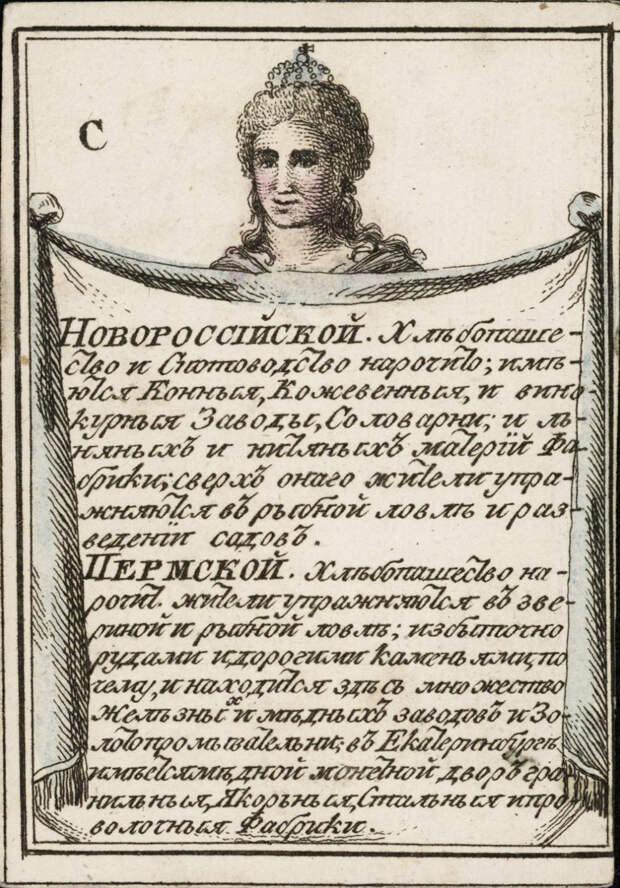 С
НОВОРОССІЙСКОЙ. Хлѣбопаше-
ство и Скотоводство нарочито; имѣ-
ются Конныя, Кожевенныя, и вино-
курныя Заводы, Соловарни; и ль-
няныхъ и нитяныхъ матерїй Фа-
брики; сверхъ онаго жители упра-
жняются въ рыбной ловлѣ и раз-
ведении садовъ.
ПЕРМСКОЙ. Хлѣбопашество на-
рочит. жители упражняются въ зве-
риной и рыбной ловлѣ; избыточно
рудами и дорогими каменьями, по
чему, и находится здѣсь множество
желѣзныхъ и мѣдныхъ заводовъ и Зо-
лотопромывательни; въ Екатеринбургѣ
имѣется мѣдной монетной дворъ гра-
нильныя, Якорныя, Стальныя и про-
волочныя Фабрики.